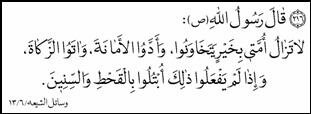 ﴿٢١٦﴾ قَالَ رَسُولُ اللهِ (ص):
لَا تَزَالُ أُمَّتِي بِخَيْرٍ يَتَحَاوَنُوا، وَأَدَّوُا الْأَمَانَةَ، وَاتَوُا الزَّكَاةَ،
وَإِذَا لَمْ يَفْعَلُوا ذٰلِكَ أُبْتُلُوا بِالْقَحْطِ وَالسِّنِينَ.
وسائل الشیعه/١٣/٦